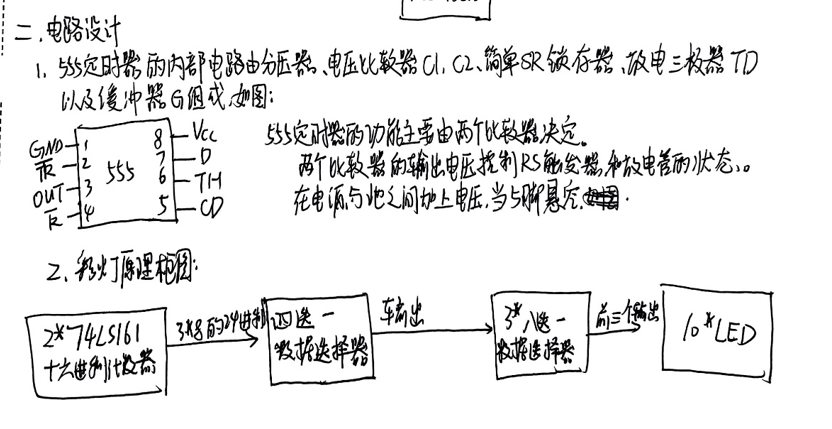 二.电路设计
1. 555定时器的内部电路由分压器、电压比较器C1、C2、简单SR锁存器、放电三极管TD
以及缓冲器G组成,如图:
GND 1 555 8 Vcc
TR 2 7 D
OUT 3 6 TH
R 4 5 CD
555定时器的功能主要由两个比较器决定。
两个比较器的输出电压控制RS触发器和放电管的状态,。
在电源与地之间加上电压,当5脚悬空,
2. 彩灯原理框图:
2*74LS161
十六进制计数器
3*8的24进制
四选一
数据选择器
输出
3*八选一
数据选择器
前三个输出
10*LED